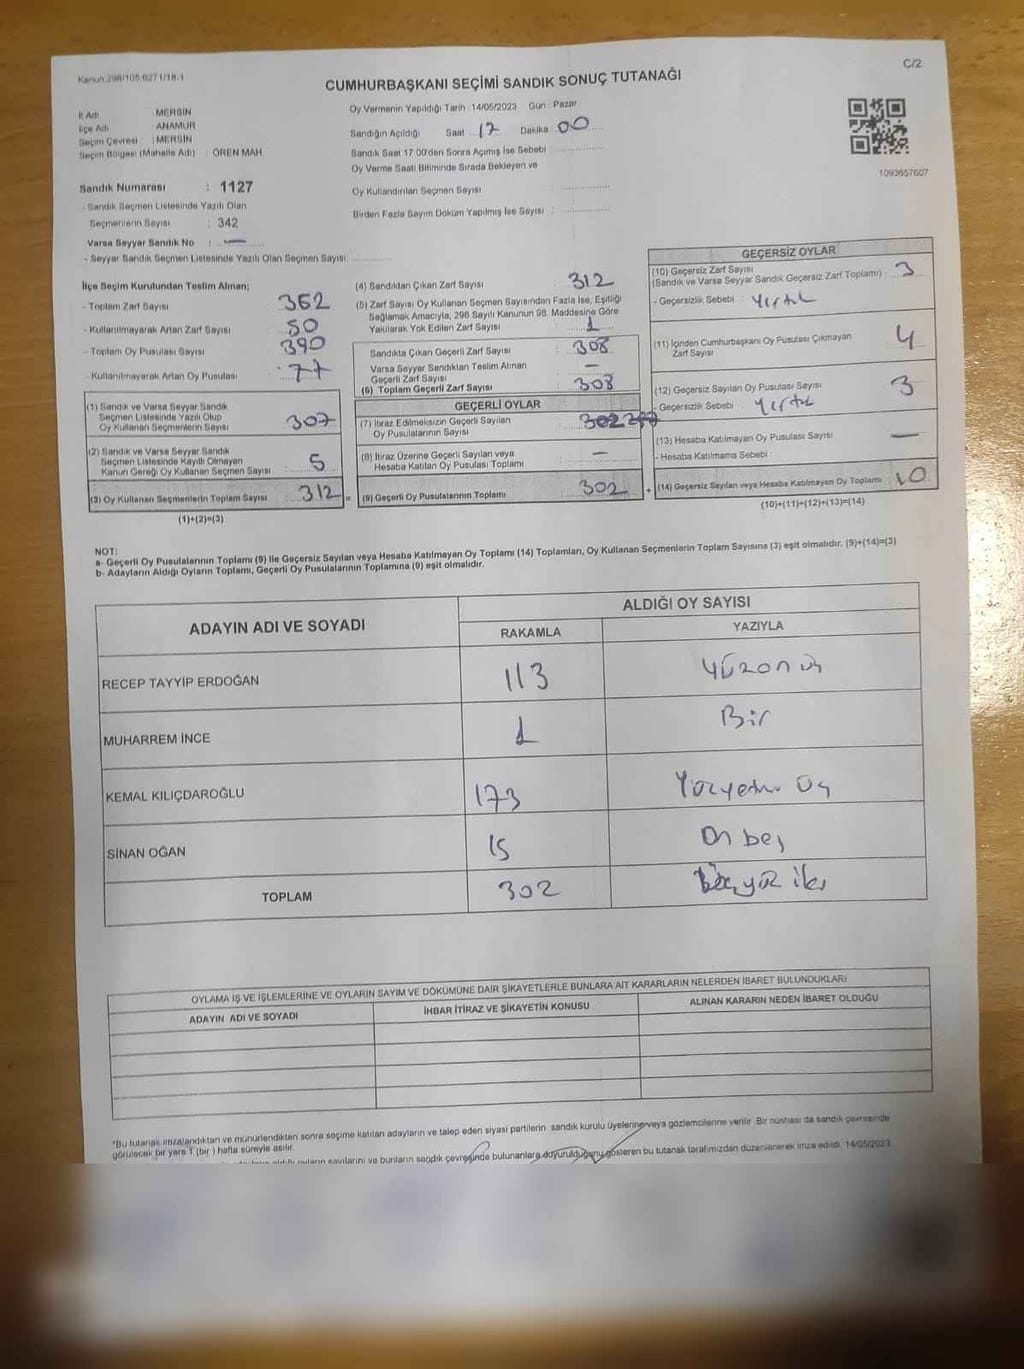 Kanun:298/105;6271/18-1
C/2
CUMHURBAŞKANI SEÇİMİ SANDIK SONUÇ TUTANAĞI
İl Adı : MERSİN
İlçe Adı : ANAMUR
Seçim Çevresi : MERSİN
Seçim Bölgesi (Mahalle Adı) : ÖREN MAH.
Sandık Numarası : 1127
- Sandık Seçmen Listesinde Yazılı Olan
Seçmenlerin Sayısı : 342
Varsa Seyyar Sandık No : —
- Seyyar Sandık Seçmen Listesinde Yazılı Olan Seçmen Sayısı:
Oy Vermenin Yapıldığı Tarih :14/05/2023 Gün : Pazar
Sandığın Açıldığı Saat : 17 Dakika : 00
Sandık Saat 17:00'den Sonra Açılmış İse Sebebi :
Oy Verme Saati Bitiminde Sırada Bekleyen ve
Oy Kullandırılan Seçmen Sayısı :
Birden Fazla Sayım Döküm Yapılmış İse Sayısı :
1093657607
İlçe Seçim Kurulundan Teslim Alınan;
- Toplam Zarf Sayısı : 362
- Kullanılmayarak Artan Zarf Sayısı : 50
- Toplam Oy Pusulası Sayısı : 390
- Kullanılmayarak Artan Oy Pusulası : 77
(1) Sandık ve Varsa Seyyar Sandık
Seçmen Listesinde Yazılı Olup
Oy Kullanan Seçmenlerin Sayısı : 307
(2) Sandık ve Varsa Seyyar Sandık
Seçmen Listesinde Kayıtlı Olmayan
Kanun Gereği Oy Kullanan Seçmen Sayısı : 5
(3) Oy Kullanan Seçmenlerin Toplam Sayısı : 312
(1)+(2)=(3)
(4) Sandıktan Çıkan Zarf Sayısı : 312
(5) Zarf Sayısı Oy Kullanan Seçmen Sayısından Fazla İse, Eşitliği
Sağlamak Amacıyla, 298 Sayılı Kanunun 98. Maddesine Göre
Yakılarak Yok Edilen Zarf Sayısı : 1
Sandıkta Çıkan Geçerli Zarf Sayısı : 308
Varsa Seyyar Sandıktan Teslim Alınan
Geçerli Zarf Sayısı : —
(6) Toplam Geçerli Zarf Sayısı : 308
GEÇERLİ OYLAR
(7) İtiraz Edilmeksizin Geçerli Sayılan
Oy Pusulalarının Sayısı : 302
(8) İtiraz Üzerine Geçerli Sayılan veya
Hesaba Katılan Oy Pusulası Toplamı : —
(9) Geçerli Oy Pusulalarının Toplamı : 302
GEÇERSİZ OYLAR
(10) Geçersiz Zarf Sayısı
(Sandık ve Varsa Seyyar Sandık Geçersiz Zarf Toplamı) : 3
- Geçersizlik Sebebi : Yırtık
(11) İçinden Cumhurbaşkanı Oy Pusulası Çıkmayan
Zarf Sayısı : 4
(12) Geçersiz Sayılan Oy Pusulası Sayısı : 3
- Geçersizlik Sebebi : Yırtık
(13) Hesaba Katılmayan Oy Pusulası Sayısı : —
- Hesaba Katılmama Sebebi :
(14) Geçersiz Sayılan veya Hesaba Katılmayan Oy Toplamı : 10
(10)+(11)+(12)+(13)=(14)
NOT:
a- Geçerli Oy Pusulalarının Toplamı (9) ile Geçersiz Sayılan veya Hesaba Katılmayan Oy Toplamı (14) Toplamları, Oy Kullanan Seçmenlerin Toplam Sayısına (3) eşit olmalıdır. (9)+(14)=(3)
b- Adayların Aldığı Oyların Toplamı, Geçerli Oy Pusulalarının Toplamına (9) eşit olmalıdır.
ADAYIN ADI VE SOYADI
ALDIĞI OY SAYISI
RAKAMLA YAZIYLA
RECEP TAYYİP ERDOĞAN 113 Yüzonüç
MUHARREM İNCE 1 Bir
KEMAL KILIÇDAROĞLU 173 Yüzyetmiş Üç
SİNAN OĞAN 15 On beş
TOPLAM 302 Üçyüz iki
OYLAMA İŞ VE İŞLEMLERİNE VE OYLARIN SAYIM VE DÖKÜMÜNE DAİR ŞİKAYETLERLE BUNLARA AİT KARARLARIN NELERDEN İBARET BULUNDUKLARI
ADAYIN ADI VE SOYADI İHBAR İTİRAZ VE ŞİKAYETİN KONUSU ALINAN KARARIN NEDEN İBARET OLDUĞU
*Bu tutanak imzalandıktan ve mühürlendikten sonra seçime katılan adayların ve talep eden siyasi partilerin sandık kurulu üyelerine veya gözlemcilerine verilir. Bir nüshası da sandık çevresinde
görülecek bir yere 1 (bir ) hafta süreyle asılır.
aldığı oyların sayılarını ve bunların sandık çevresinde bulunanlara duyurulduğunu gösteren bu tutanak tarafımızdan düzenlenerek imza edildi. 14/05/2023